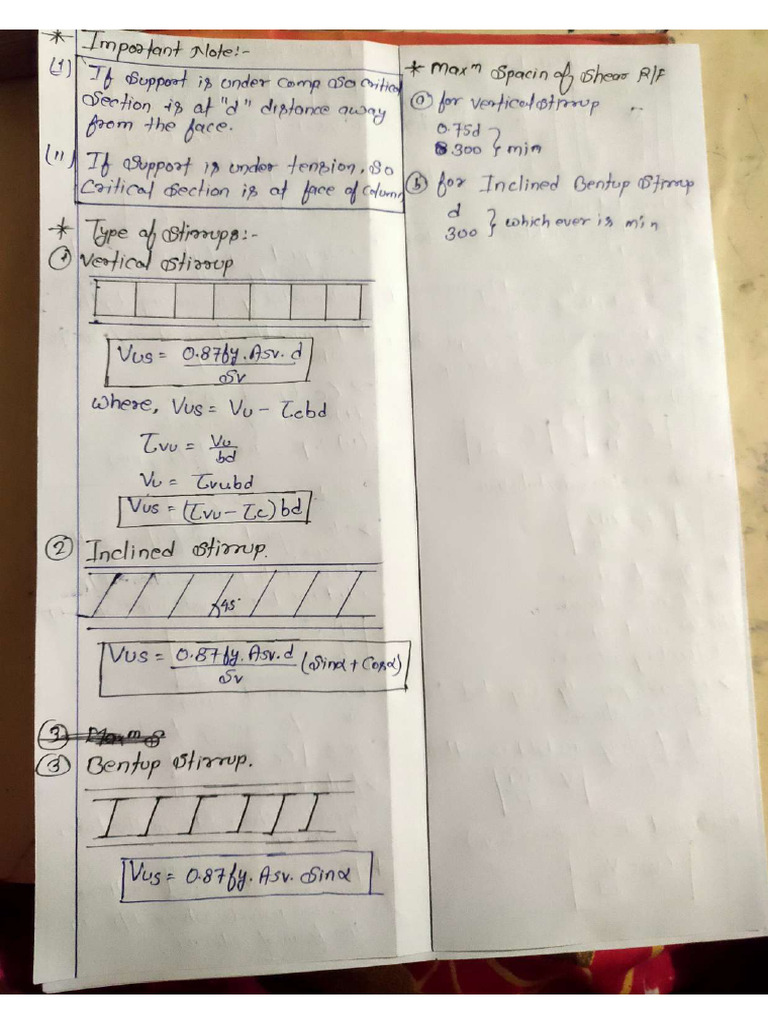 * Important Note:-
(I) If Support is under comp so critical
Section is at "d" distance away
from the face.
(II) If Support is under tension, so
Critical Section is at face of Column
* Type of Stirrups:-
① Vertical Stirrup
Vus = 0.87fy. Asv. d / Sv
where, Vus = Vu - τcbd
τvu = Vu / bd
Vu = τvubd
Vus = (τvu - τc) bd
② Inclined Stirrup.
45°
Vus = 0.87fy. Asv. d / Sv (Sinα + Cosα)
③ Bentup Stirrup.
Vus = 0.87fy. Asv. Sinα
* Maxᵐ Spacin of Shear R/F
ⓐ for vertical stirrup
0.75d
300 } min
ⓑ for Inclined Bentup Stirrup
d
300 } which ever is min